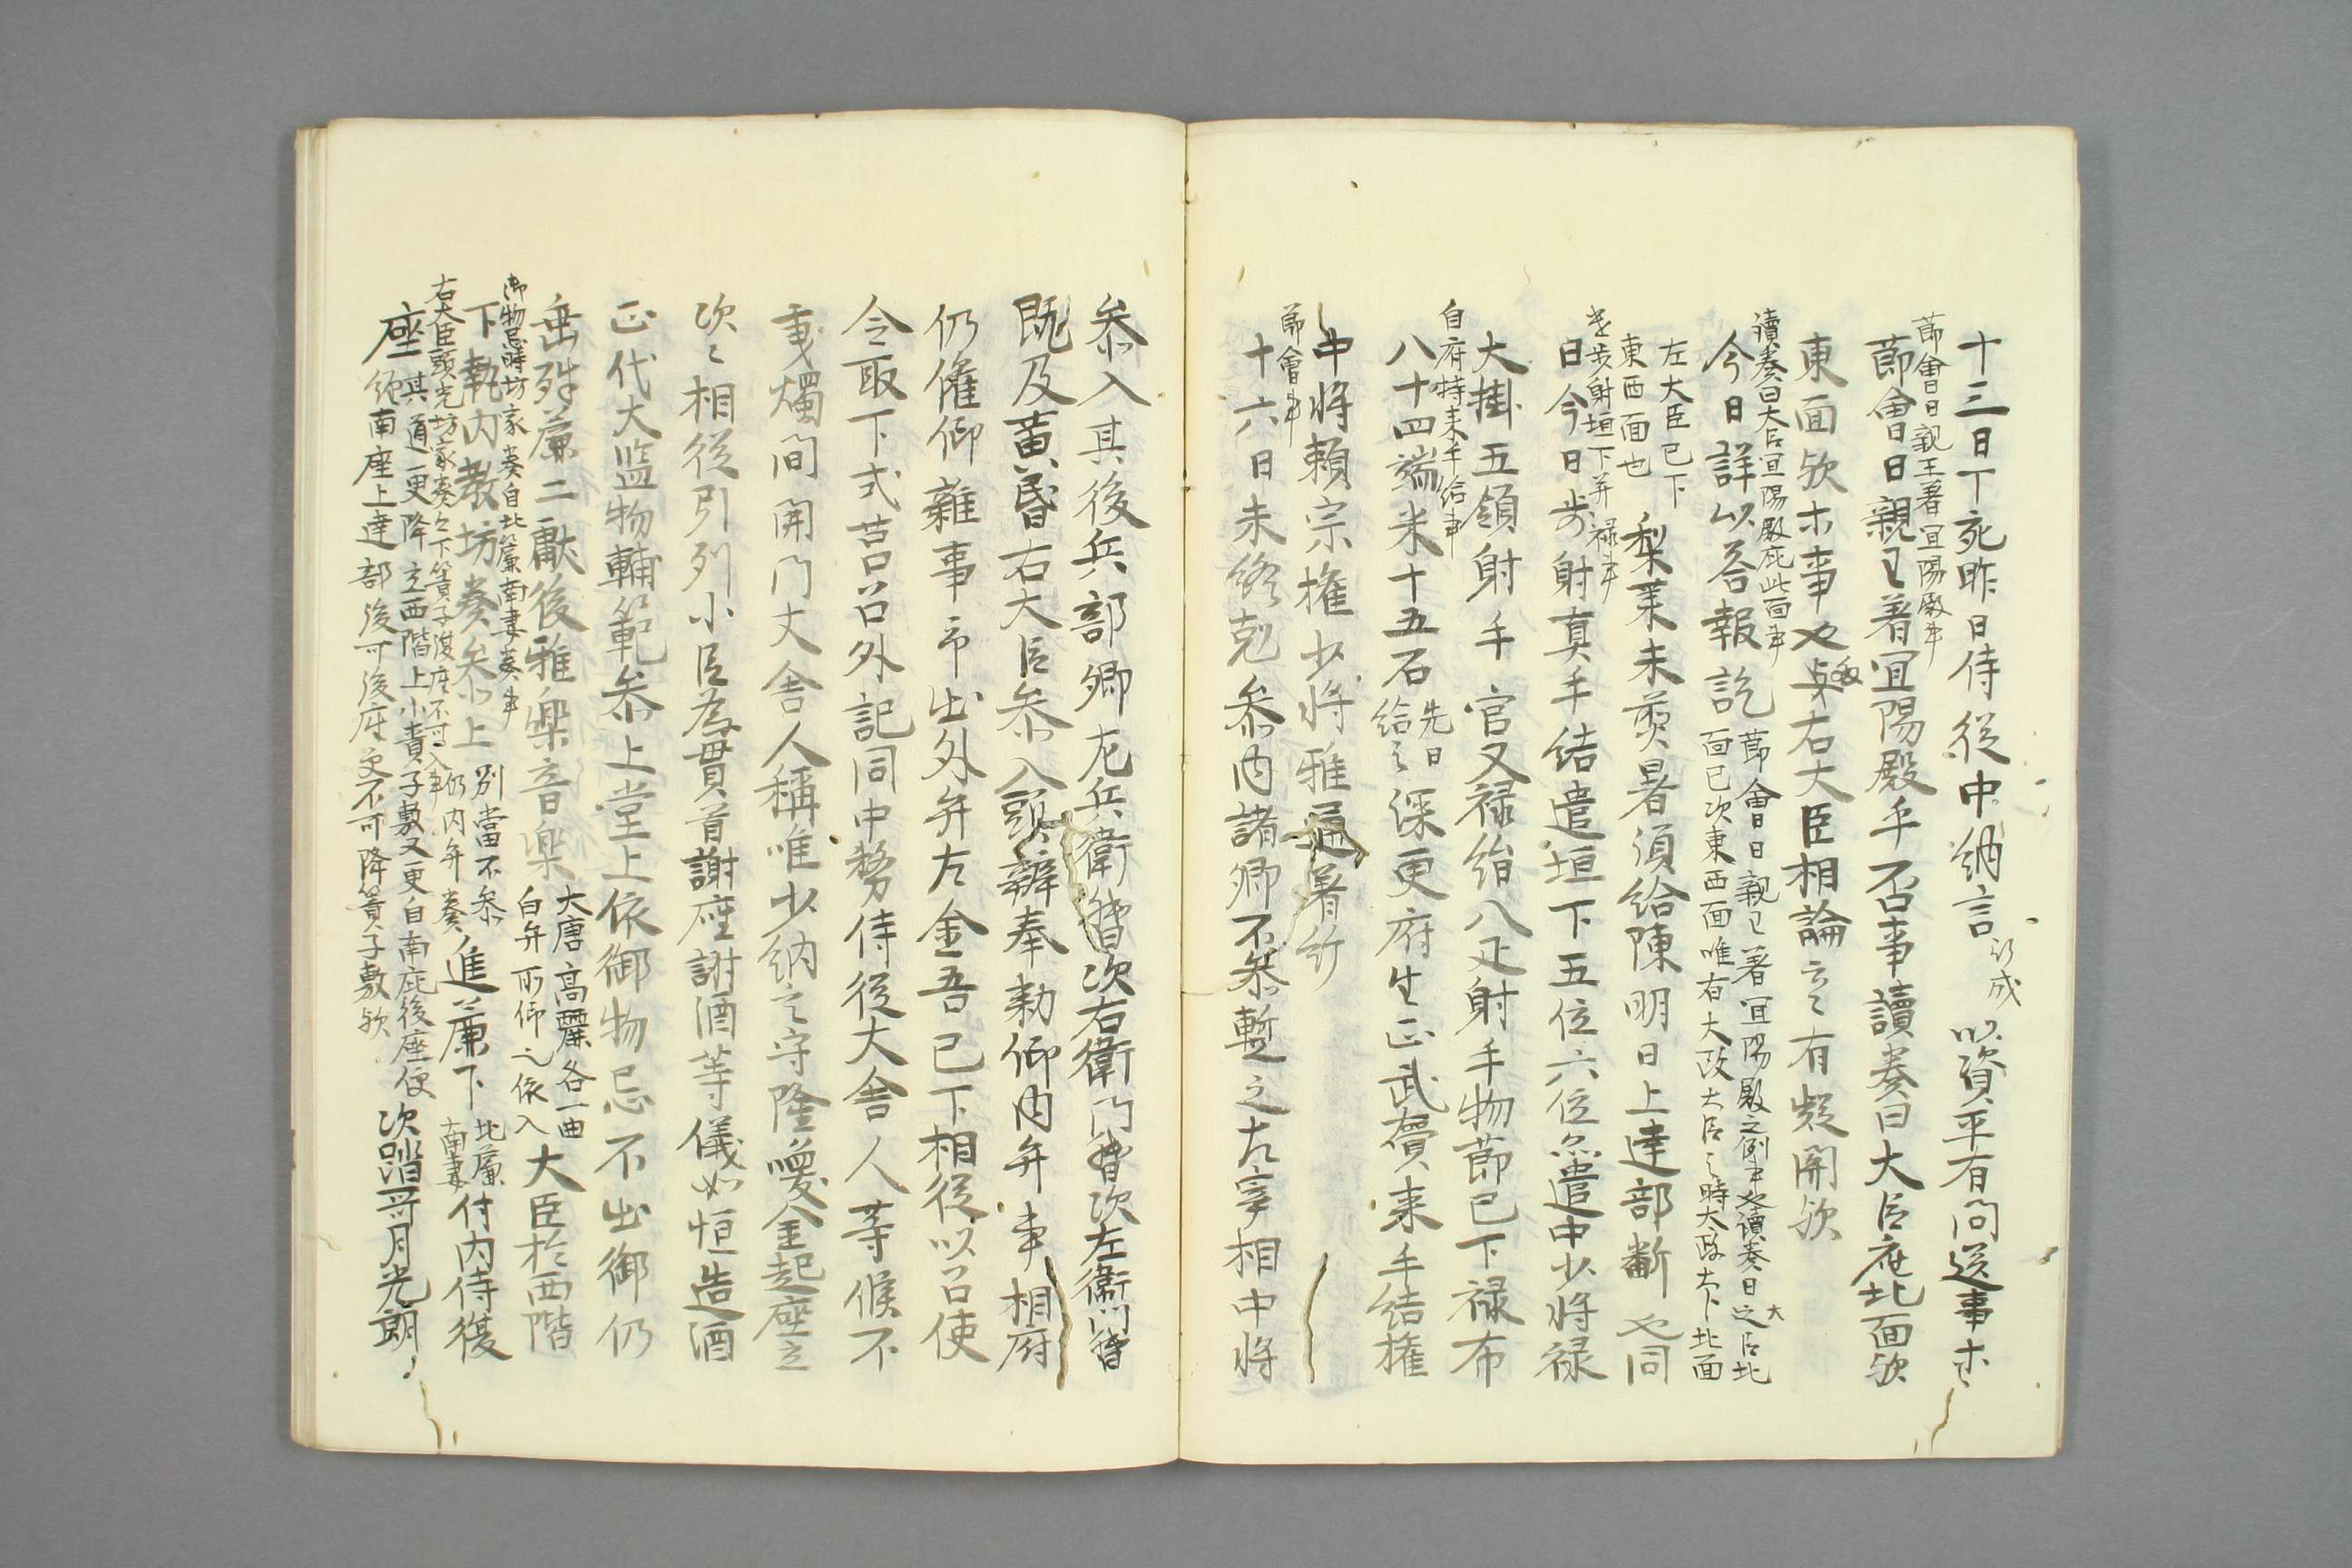 十三日丁死昨日侍従中納言行成以資平有問送事等
節會日親王著宜陽殿事
節會日親王著宜陽殿乎否事讀奏曰大臣座北面欤
東面欤等事也右大臣相論云々有疑開欤
讀奏曰大臣宜陽殿庇北面事
今日詳以答報訖
節會日親王著宜陽殿之例事也讀奏日之大臣北
面已次東西面唯右大政大臣之時大政大下北面
左大臣已下
東西面也
梨菓未煎暑須給陳明日上達部断也同
歩射垣下并禄事
日今日歩射真手結遣垣下五位六位亦遣中少将禄
大掛五領射手官又禄絹八疋射手物節已下禄布
自府特来手給事
八十四端米十五石
先日
給之
深更府生正武賷来手結権
中将頼宗権少将雅通著行
節會事
十六日未終剋参内諸卿不参暫之左宰相中将
参入其後兵部卿左兵衛督次右衛門督次左衛門督
既及黄昏右大臣参入頭辨奉勅仰内弁事相府
仍催仰雑事即出外弁左金吾已下相従以召使
令取下式筥召外記同中務侍従大舎人等候不
秉燭間開門丈舎人稱唯少納言守隆喚余起座立
次々相従引列小臣為貫首謝座謝酒等儀如恒造酒
正代大監物輔範参上堂上依御物忌不出御仍
垂殊簾二獻後雅樂音樂
大唐高麗各一曲
自弁所仰之依入
大臣於西階
御物忌時坊家奏自北簾南妻奏事
下執内教坊奏参上
別當不参
仍内弁奏
進簾下
北簾
南妻
付内侍復
右大臣頭先坊家奏々下簀子復座不可入事
座
其道更降立西階上小簀子敷又更自南庇後座便
従南座上達部後可復座更不可降簀子敷欤
次踏哥月光朗々